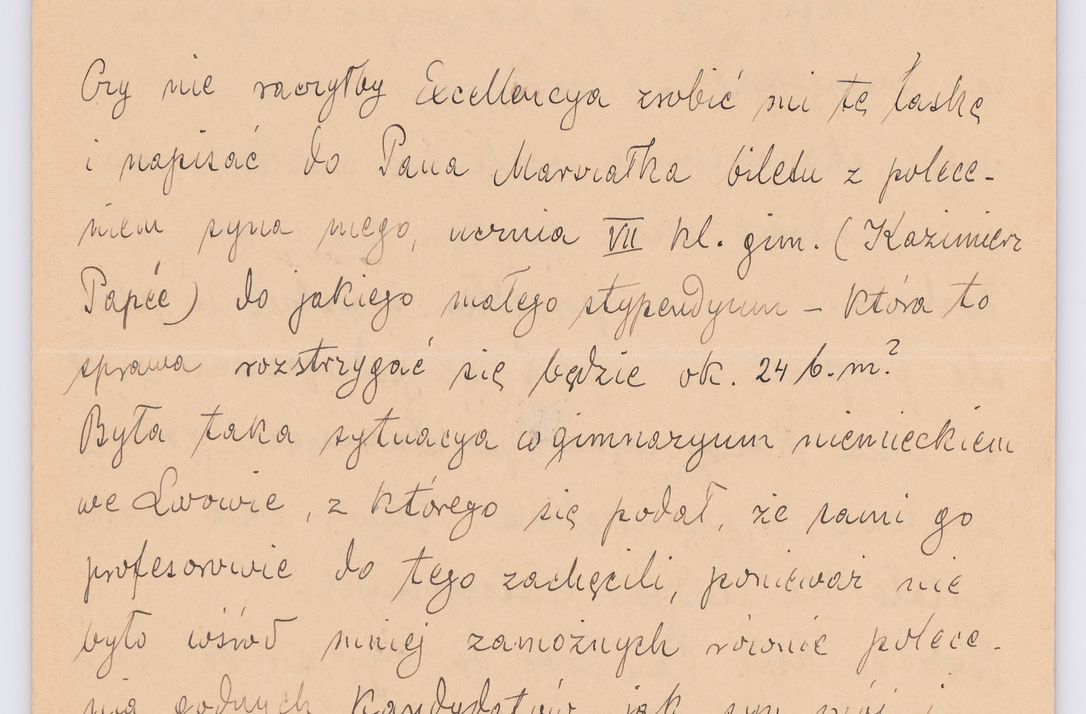 Czy nie raczyłby Excellencya zrobić mi tę łaskę
i napisać do Pana Marszałka biletu z polece-
niem syna mego, ucznia VII kl. gim. (Kazimierz
Papée) do jakiego małego stypendyum – która to
sprawa rozstrzygać się będzie ok. 24 b.m?
Była taka sytuacya w gimnazyum niemieckiem
we Lwowie, z którego się podał, że sami go
profesorowie do tego zachęcili, ponieważ nie
było wśród mniej zamożnych równie polece-
nia godnych kandydatów jak syn mój i